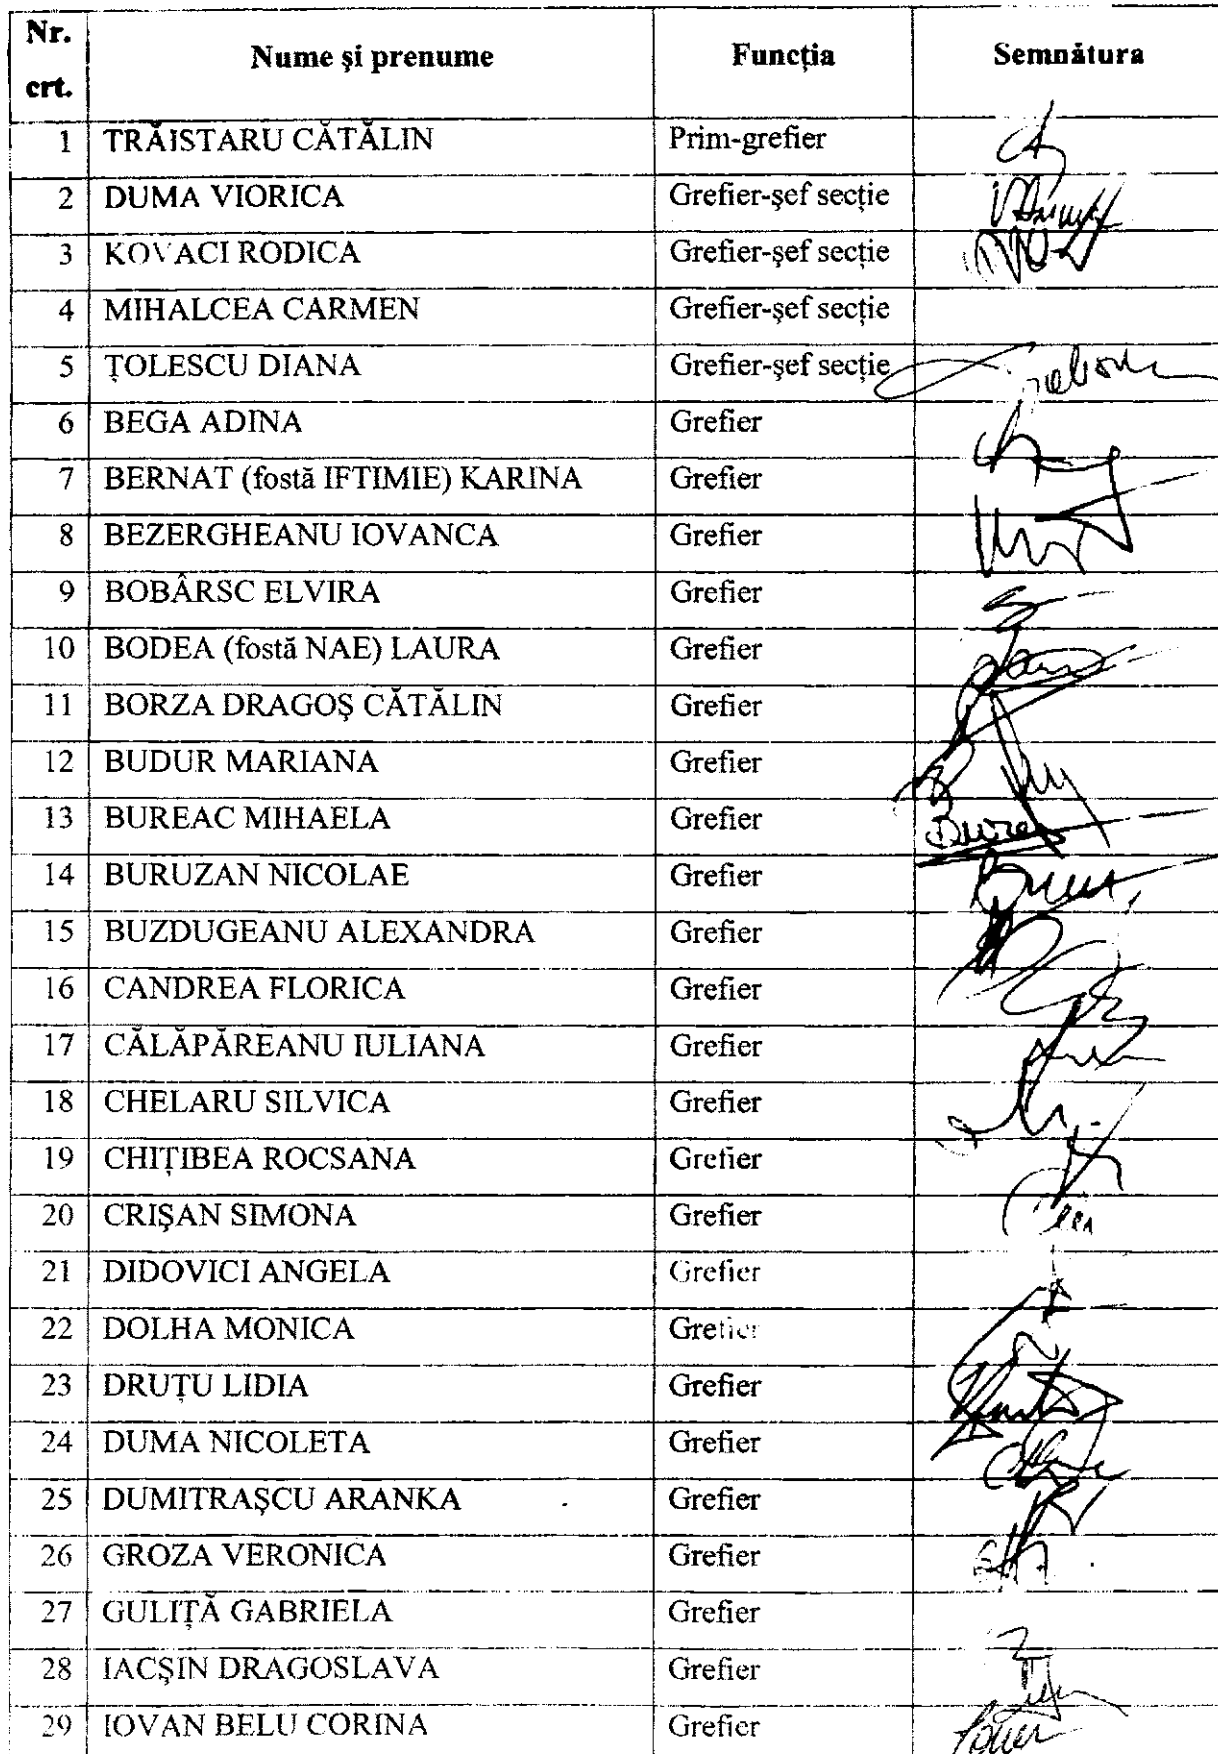 Nr. crt. Nume şi prenume Funcţia Semnătura
1 TRĂISTARU CĂTĂLIN Prim-grefier
2 DUMA VIORICA Grefier-şef secţie
3 KOVACI RODICA Grefier-şef secţie
4 MIHALCEA CARMEN Grefier-şef secţie
5 ŢOLESCU DIANA Grefier-şef secţie
6 BEGA ADINA Grefier
7 BERNAT (fostă IFTIMIE) KARINA Grefier
8 BEZERGHEANU IOVANCA Grefier
9 BOBÂRSC ELVIRA Grefier
10 BODEA (fostă NAE) LAURA Grefier
11 BORZA DRAGOŞ CĂTĂLIN Grefier
12 BUDUR MARIANA Grefier
13 BUREAC MIHAELA Grefier
14 BURUZAN NICOLAE Grefier
15 BUZDUGEANU ALEXANDRA Grefier
16 CANDREA FLORICA Grefier
17 CĂLĂPĂREANU IULIANA Grefier
18 CHELARU SILVICA Grefier
19 CHIŢIBEA ROCSANA Grefier
20 CRIŞAN SIMONA Grefier
21 DIDOVICI ANGELA Grefier
22 DOLHA MONICA Grefier
23 DRUŢU LIDIA Grefier
24 DUMA NICOLETA Grefier
25 DUMITRAŞCU ARANKA Grefier
26 GROZA VERONICA Grefier
27 GULIŢĂ GABRIELA Grefier
28 IACŞIN DRAGOSLAVA Grefier
29 IOVAN BELU CORINA Grefier